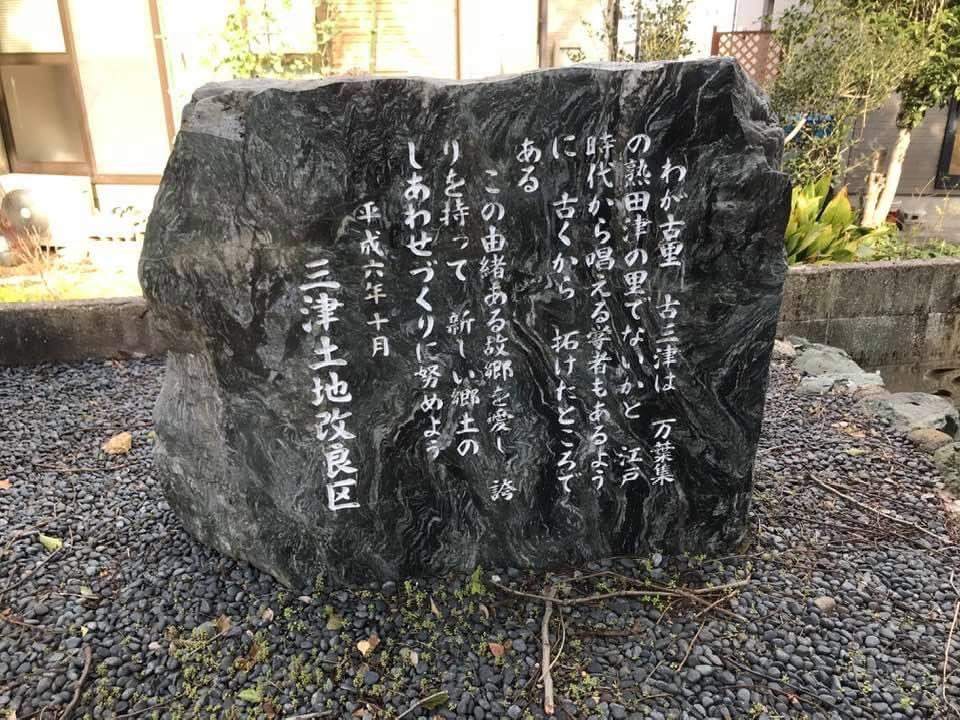 わが古里　古三津は　万葉集
の熟田津の里でないかと　江戸
時代から唱える学者もあるよう
に　古くから　拓けたところで
ある
この由緒ある故郷を愛し　誇
りを持って　新しい郷土の
しあわせづくりに努めよう
平成六年十月
三津土地改良区